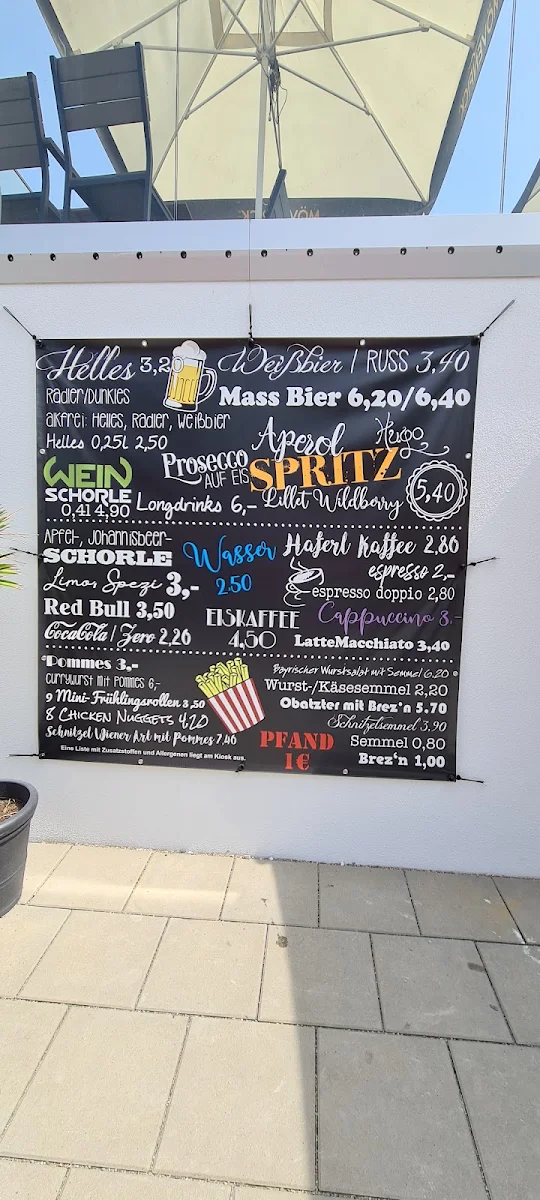 Helles 3,20 Weißbier / RUSS 3,40
RADLER/DUNKLES Mass Bier 6,20/6,40
alkfrei: Helles, Radler, Weißbier
Helles 0,25L 2,50
Aperol Hugo
Prosecco AUF EIS SPRITZ
WEIN SCHORLE 0,4l 4,90
Longdrinks 6,- Lillet Wildberry 5,40
Apfel-, Johannisbeer-
SCHORLE
Wasser 2.50
Haferl Kaffee 2,80
Limo, Spezi 3,-
espresso 2,-
espresso doppio 2,80
Red Bull 3,50
EISKAFFEE 4,50
Cappuccino 3.-
CocaCola / Zero 2,20
LatteMacchiato 3,40
Pommes 3,-
Currywurst mit Pommes 6,-
9 Mini-Frühlingsrollen 3,50
8 Chicken Nuggets 4,20
Schnitzel Wiener Art mit Pommes 7,40
Eine Liste mit Zusatzstoffen und Allergenen liegt am Kiosk aus.
Bayrischer Wurstsalat mit Semmel 6,20
Wurst-/Käsesemmel 2,20
Obatzter mit Brez'n 5.70
Schnitzelsemmel 3,90
PFAND 1€
Semmel 0,80
Brez'n 1,00